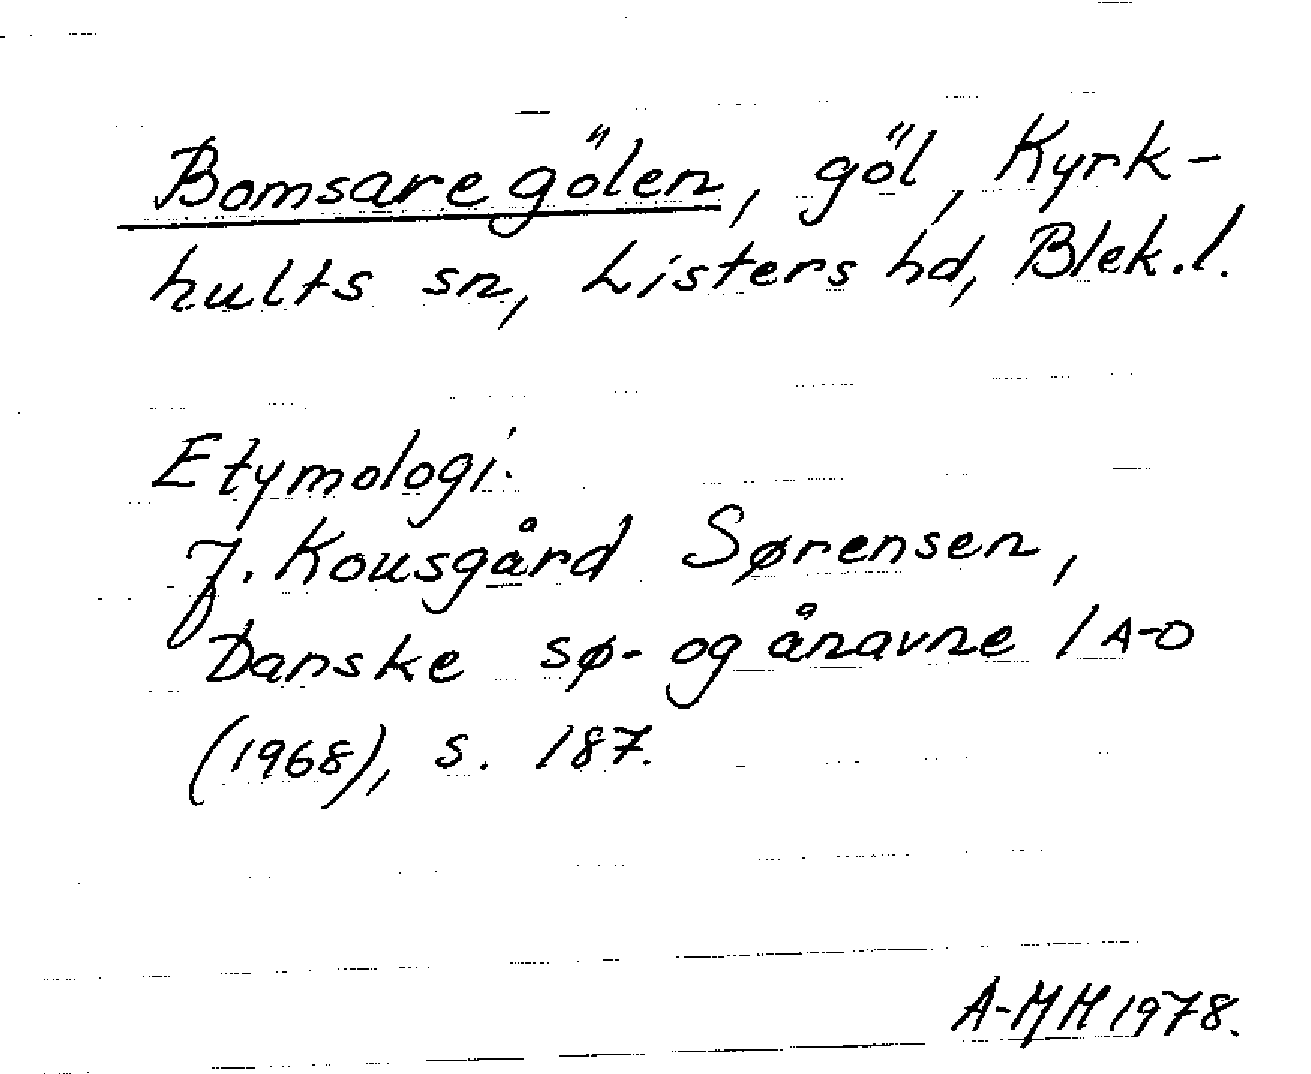 Bomsaregölen, göl, Kyrk-
hults sn, Listers hd, Blek.l.
Etymologi:
J. Kousgård Sørensen,
Danske sø- og ånavne 1 A-D
(1968), s. 187.
A-MH 1978.